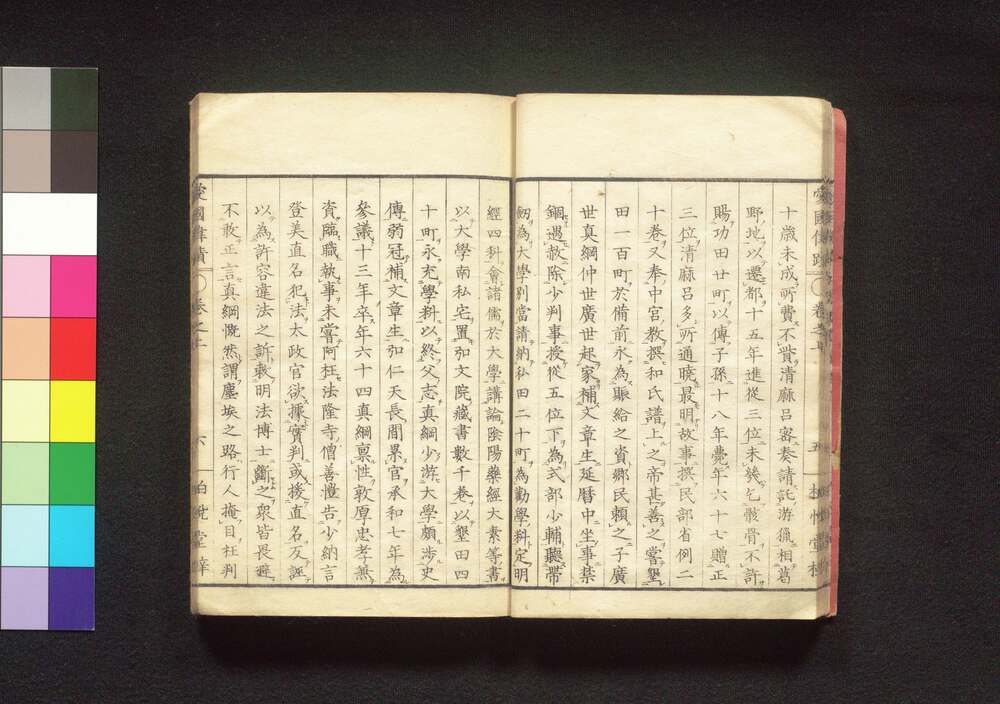 十歳未成所費不貲清麻呂審奏請託游獵相葛
野地以遷都十五年進從三位未幾乞骸骨不許
賜功田廿町以傳子孫十八年薨年六十七贈正
三位清麻呂多所通曉最明故事撰民部省例二
十卷又奉中宮教撰和氏譜上之帝甚善之嘗墾
田一百町於備前永為賑給之資鄉民賴之子廣
世真綱仲世廣世起家補文章生延曆中坐事禁
錮遇赦除少判事授從五位下為式部少輔聽帶
劒為大學別當請納私田二十町為勸學料定明
經四科會諸儒於大學講論陰陽藥經大素等書
以大學南私宅置弘文院藏書數千卷以墾田四
十町永充學料以終父志真綱少游大學頗涉史
傳弱冠補文章生弘仁天長閒累官承和七年為
參議十三年卒年六十四真綱稟性敦厚忠孝兼
資臨職執事未嘗阿枉法隆寺僧善愷告少納言
登美直名犯法太政官欲據實判或援直名反誣
以為許容違法之訴敕明法博士斷之衆皆畏避
不敢正言真綱慨然謂塵埃之路行人掩目枉判
愛國偉績
卷之上
六